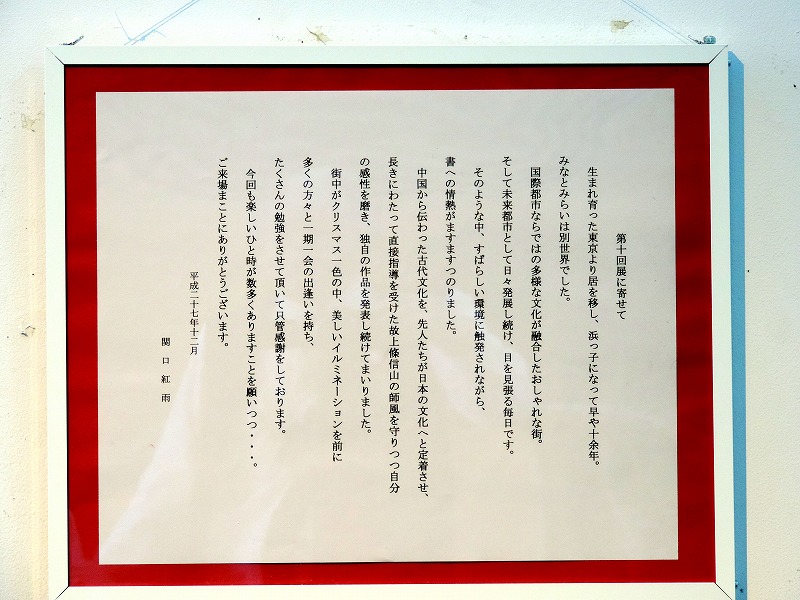 第十回展に寄せて
生まれ育った東京より居を移し、浜っ子になって早や十余年。
みなとみらいは別世界でした。
国際都市ならではの多様な文化が融合したおしゃれな街。
そして未来都市として日々発展し続け、目を見張る毎日です。
そのような中、すばらしい環境に触発されながら、
書への情熱がますますつのりました。
中国から伝わった古代文化を、先人たちが日本の文化へと定着させ、
長きにわたって直接指導を受けた故上條信山の師風を守りつつ自分
の感性を磨き、独自の作品を発表し続けてまいりました。
街中がクリスマス一色の中、美しいイルミネーションを前に
多くの方々と一期一会の出逢いを持ち、
たくさんの勉強をさせて頂いて只管感謝をしております。
今回も楽しいひと時が数多くありますことを願いつつ・・・・。
ご来場まことにありがとうございます。
平成二十七年十二月
関口紅雨